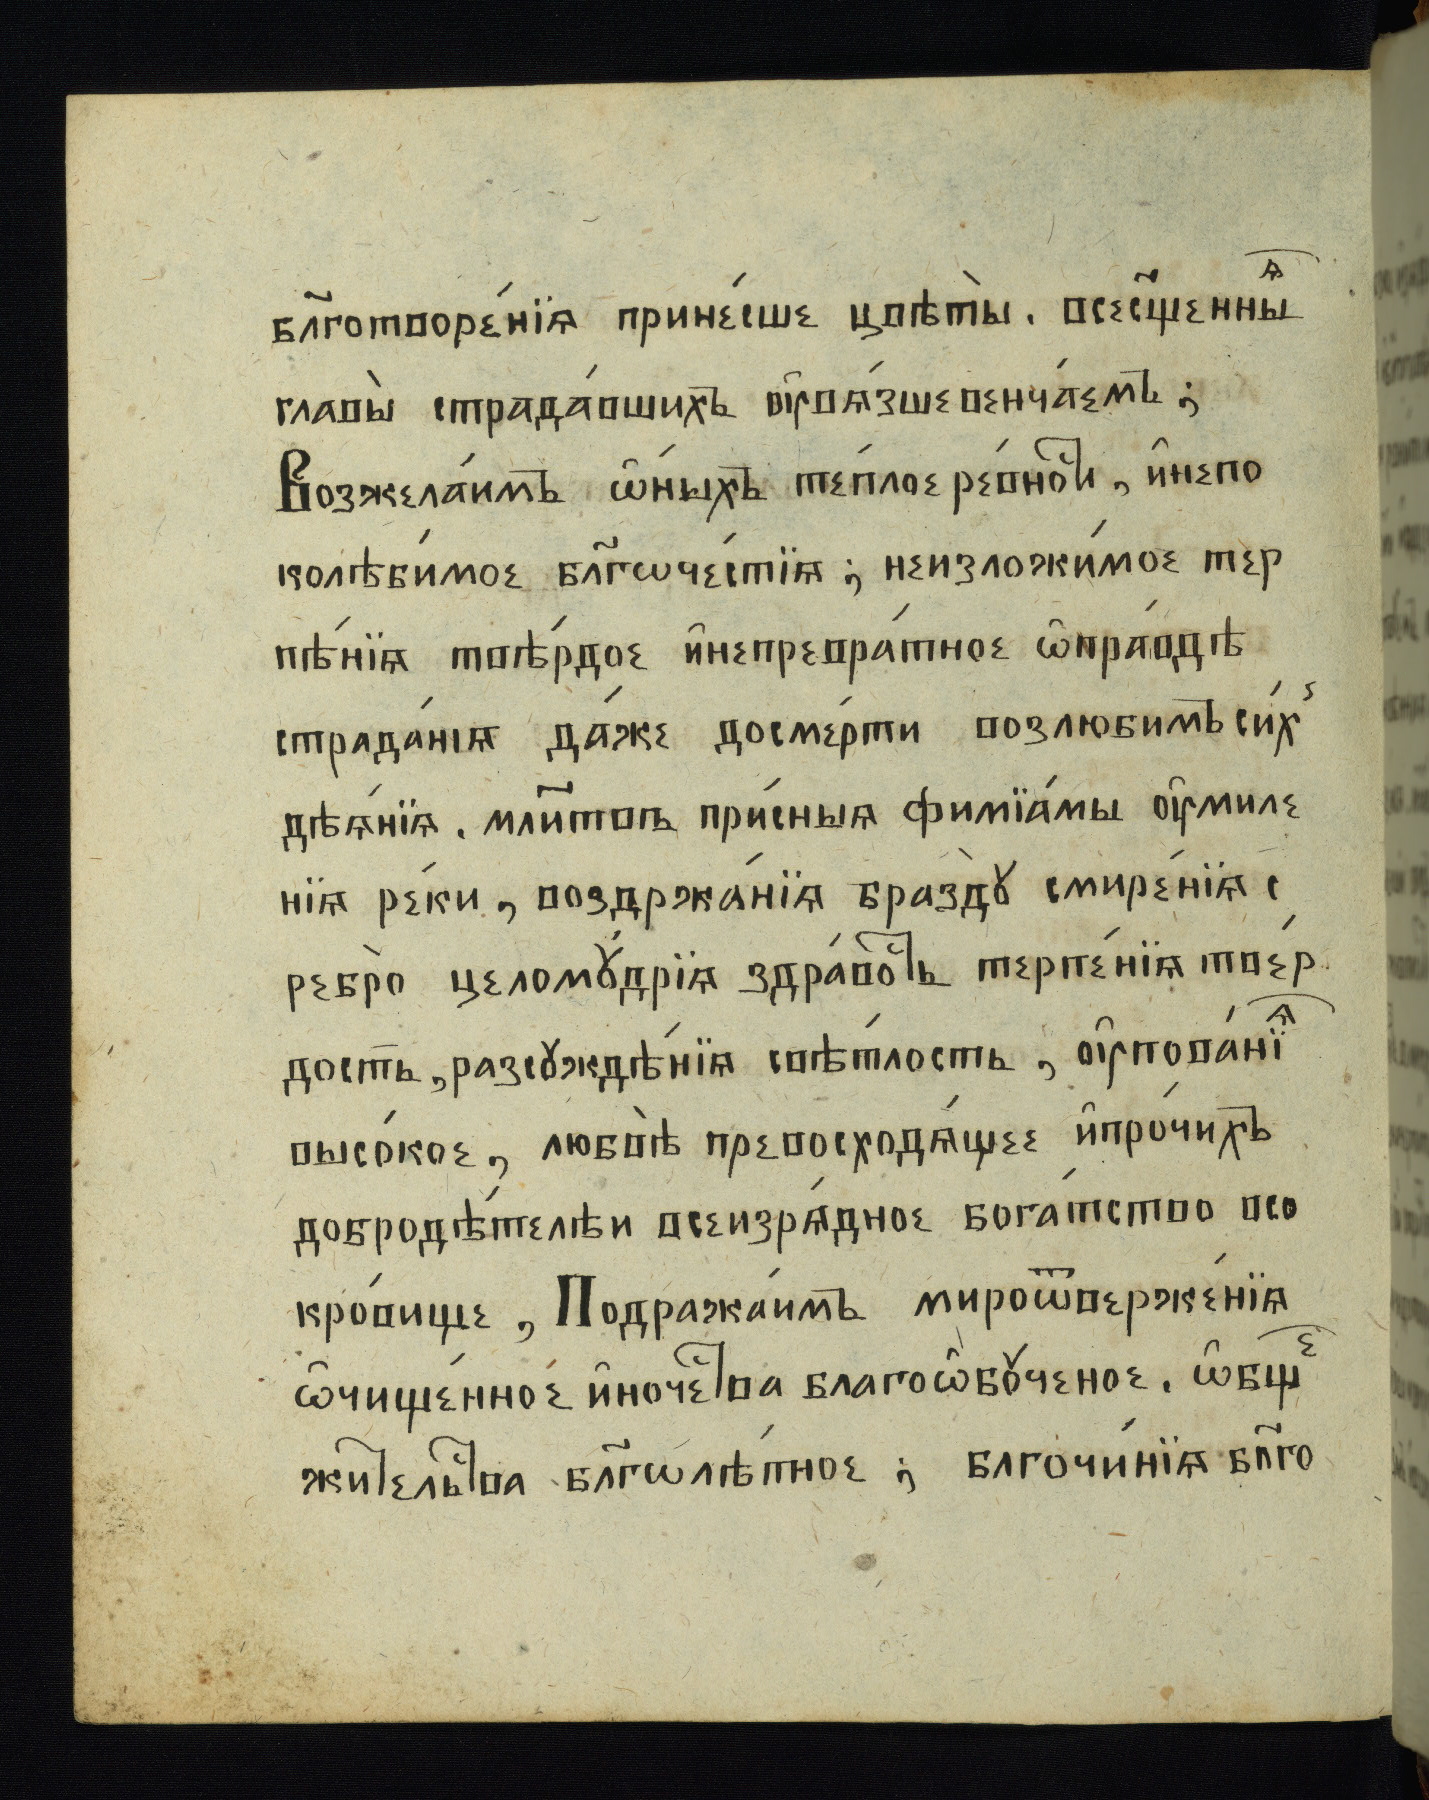 бл҃готворе́нїѧ прине́сше цвѣты̀. всесщ҃енныѧ
главы̀ страда́вшихъ ᲂу҆вѧ́зшевенча́емъ ;
Возжела́имъ ѡ҆́ныхъ те́плоере́вности , и҆непо
колѣби́мое бл҃гѡче́стїѧ ; неизложи́мое тер
пѣ́нїѧ твѣ́рдое и҆непревра́тное ѡ҆пра́вдѣ
страда́нїѧ да́же досме́рти возлюбимъси́хъ
дѣѧ́нїѧ. мл҃итвъ при́сныѧ фимїа́мы ᲂу҆миле
нїѧ ре́ки , воздржа́нїѧ бразду̀ смире́нїѧ с
ребро̀ целому́дрїѧ здра́вость терпе́нїѧ тве́р
дость , разсꙋждѣ́нїѧ свѣ́тлость , ᲂу҆пова́нїѧ
высо́кое , любвѣ̀ превосходѧ́щее и҆про́чихъ
добродѣ́телѣи всеизрѧ́дное бога́тство всо
кро́вище , Подража́имъ мироѿверже́нїѧ
ѡ҆чище́нное и҆ноче́ства благоѡ҆бꙋ́ченое. ѡ҆бще
жительства бл҃гѡлѣ́пное ; блгочи́нїѧ бл҃го